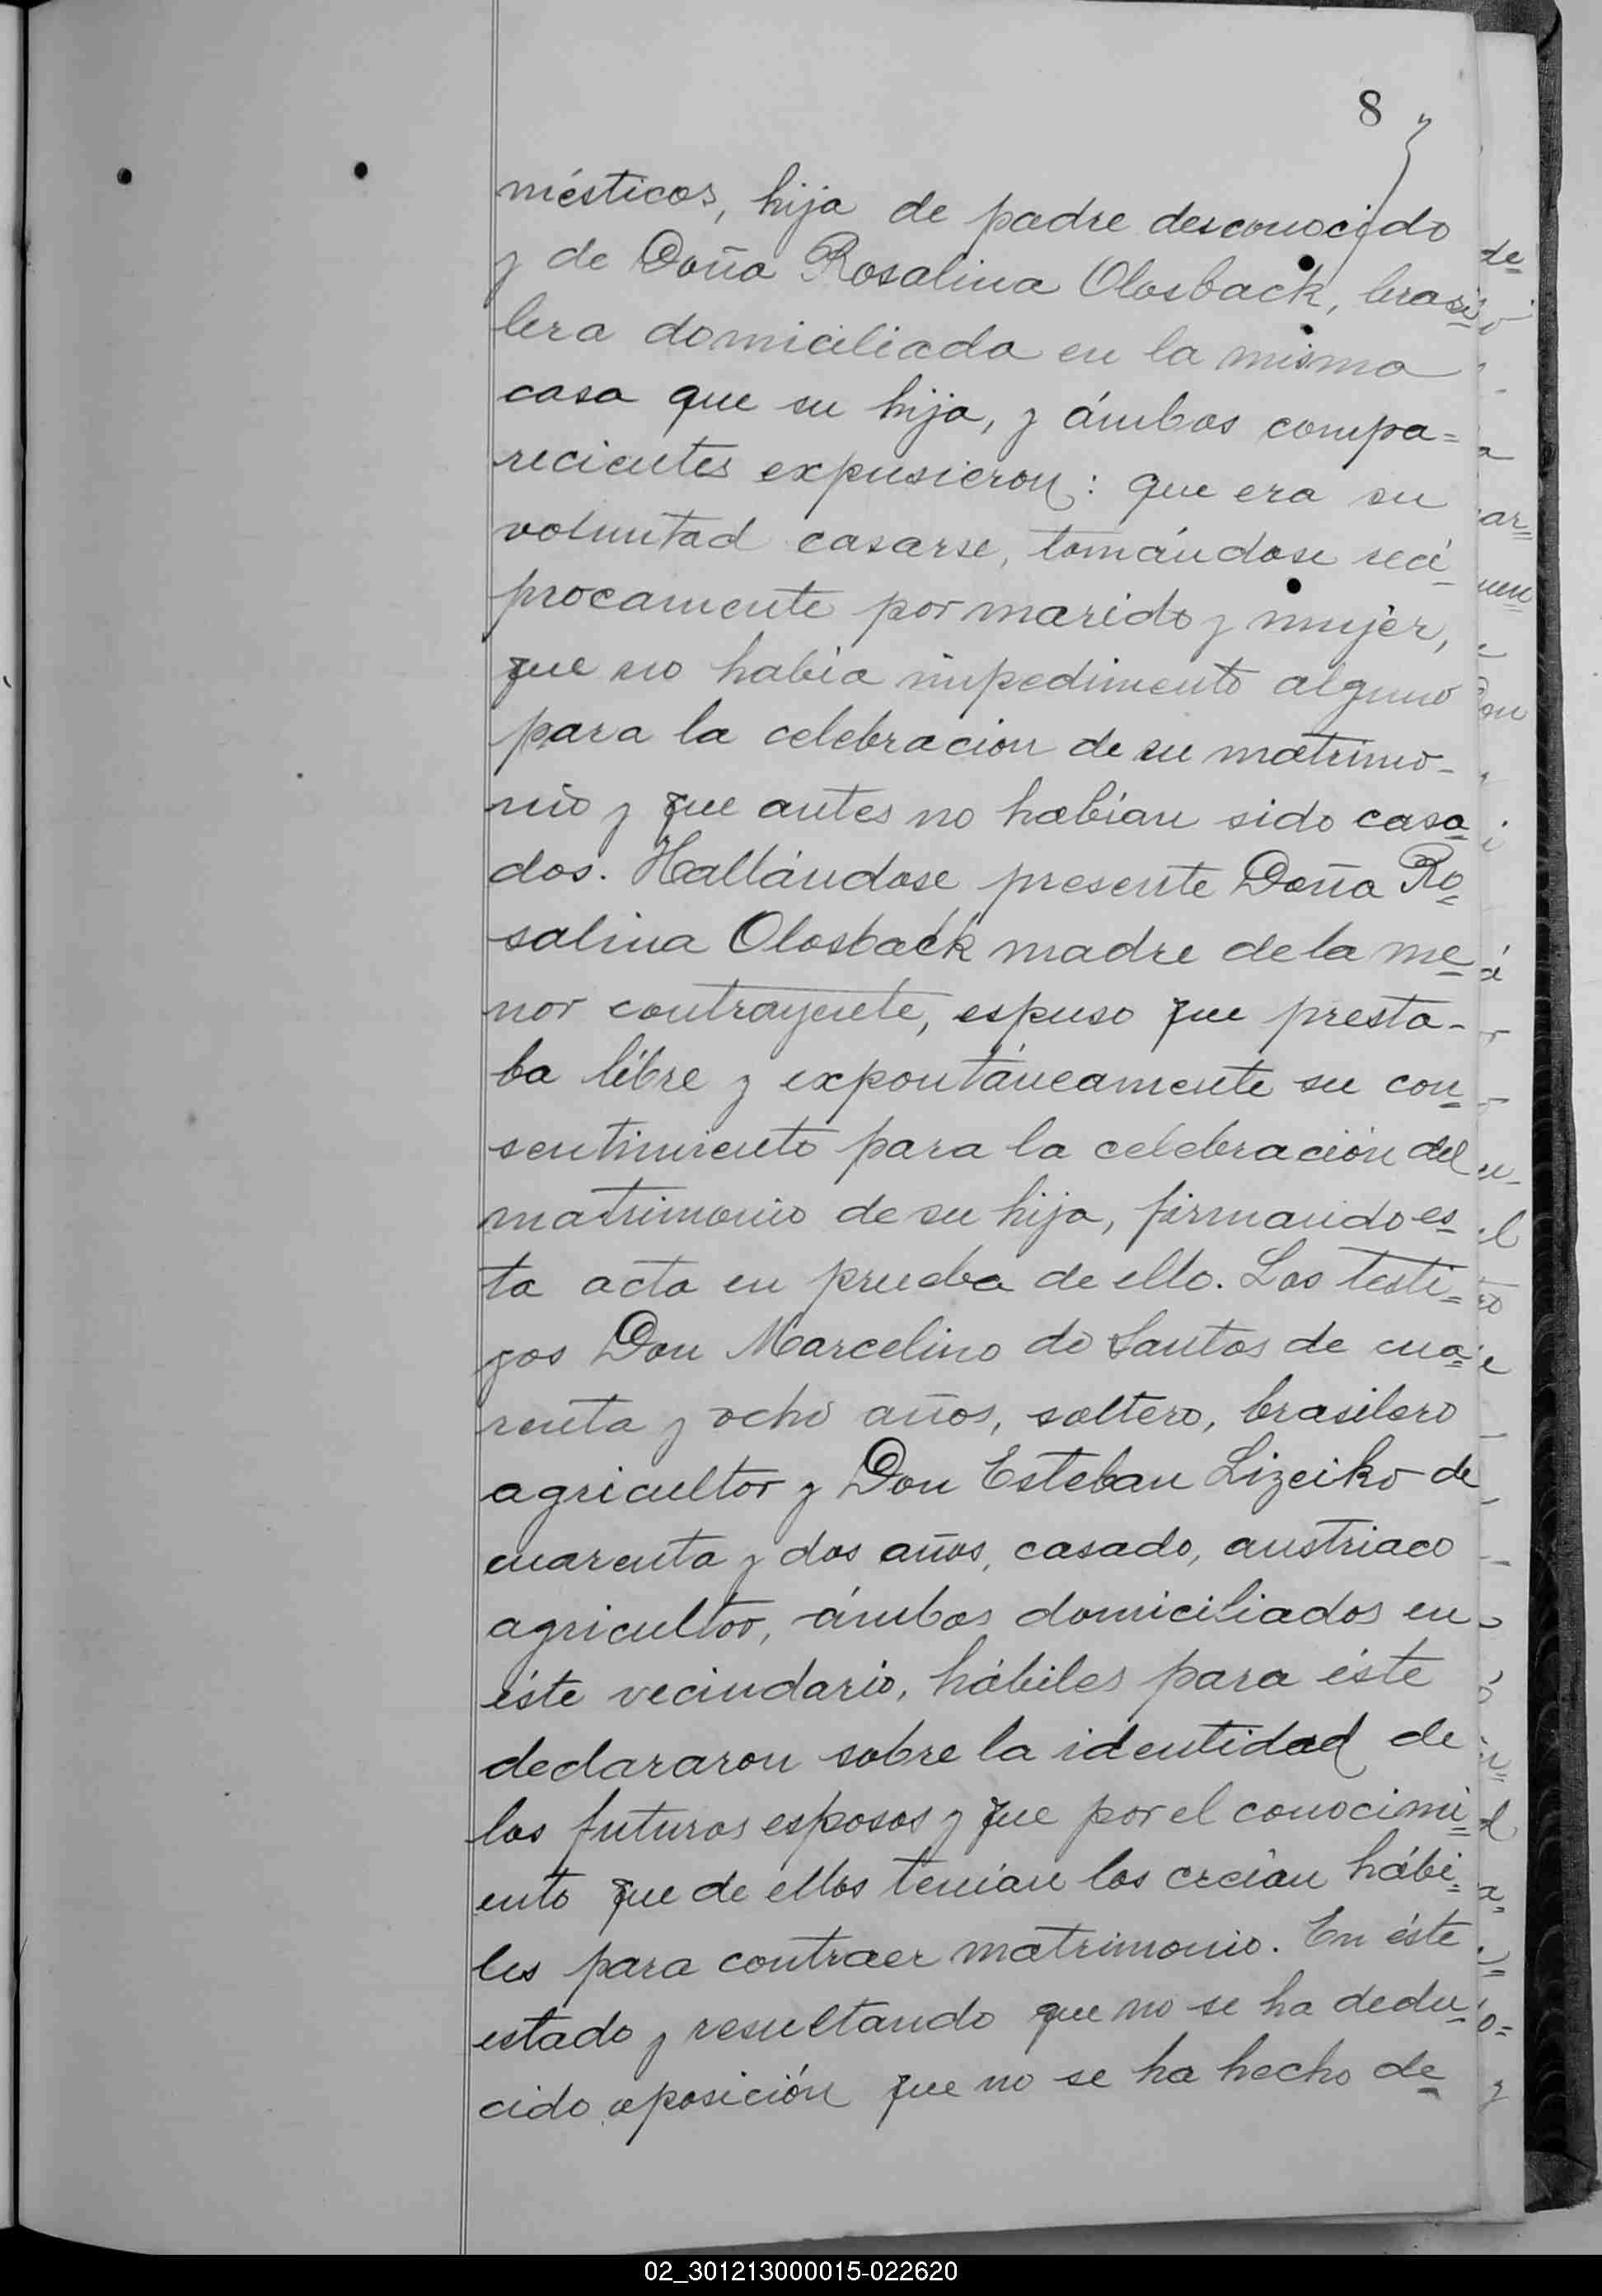 8
mésticos, hija de padre desconocido
y de Doña Rosalina Olosback, brasi=
lera domiciliada en la misma
casa que su hija, y ámbos compa=
recientes expusieron: que era su
voluntad casarse, tomándose reci-
procamente por marido y mujer,
que no habia impedimento alguno
para la celebracion de su matrimo-
nio y que antes no habian sido casa=
dos. Hallándose presente Doña Ro=
salina Olosback madre de la me-
nor contrayente, espuso que presta-
ba libre y expontáneamente su con=
sentimiento para la celebración del
matrimonio de su hija, firmando es-
ta acta en prueba de ello. Los testi=
gos Don Marcelino do Santos de cua=
renta y ocho años, soltero, brasilero
agricultor y Don Esteban Lizeiko de
cuarenta y dos años, casado, austriaco
agricultor, ámbos domiciliados en
éste vecindario, hábiles para éste
declararon sobre la identidad de
los futuros esposos y que por el conocimi=
ento que de ellos tenian los creian hábi=
les para contraer matrimonio. En éste
estado y resultando que no se ha dedu-
cido oposición que no se ha hecho de-
02_301213000015-022620